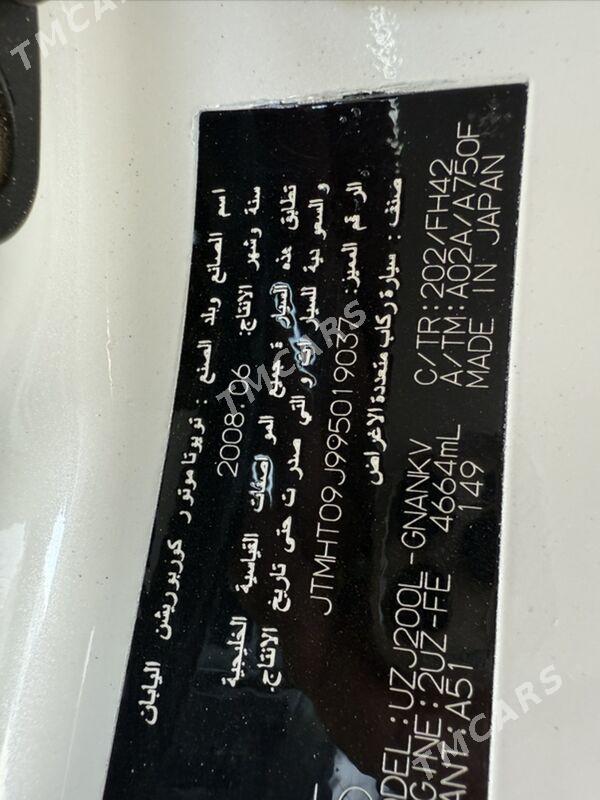 اسم الصانع وبلد الصنع : تويوتا موتور كوربوريشن اليابان
سنة وشهر الانتاج: 2008.06
تطابق هذه السيارة جميع المواصفات القياسية الخليجية
والسعودية للسيارات والتي صدرت حتى تاريخ الانتاج.
الرقم المميز: JTMHT09J995019037
صنف : سيارة ركاب متعددة الاغراض
ODEL:UZJ200L-GNANKV
GINE:2UZ-FE 4664mL
ANT:A51 149
C/TR:202/FH42
A/TM:A02A/A750F
MADE IN JAPAN
TMCARS
TMCARS
TMCARS
TMCARS